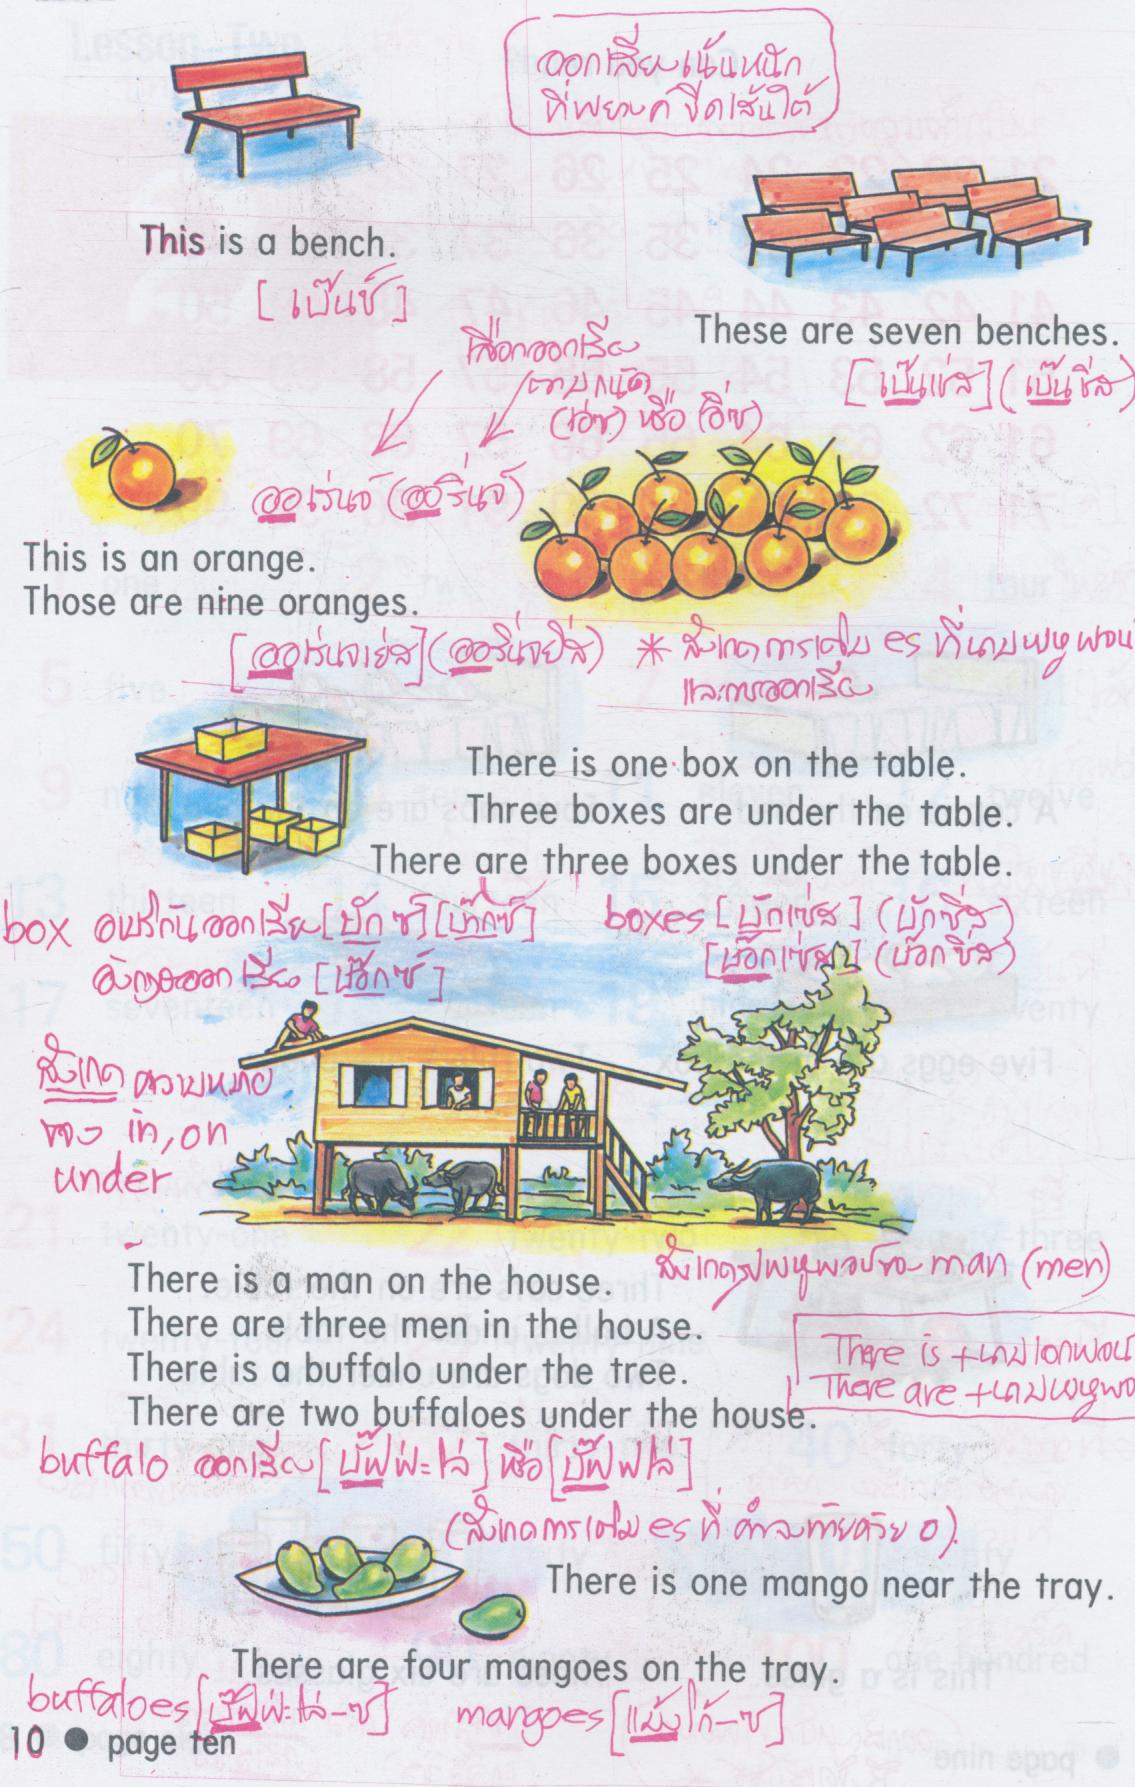 ออกเสียงเน้นหนัก
ที่พยางค์ ขีดเส้นใต้
This is a bench.
[เบ๊นช์]
These are seven benches.
[เบ๊นเช่ส] (เบ๊นชี่ส)
เลือกออกเสียง
ตามถนัด
(เอ่ซ) หรือ (อิ่ซ)
ออเร่นจ์ (ออริ่นจ์)
This is an orange.
Those are nine oranges.
[ออเร่นจเย่ส] (ออริ่นจยิ่ส) * สังเกตการเติม es ที่นามพหูพจน์
และการออกเสียง
There is one box on the table.
Three boxes are under the table.
There are three boxes under the table.
box อเมริกันออกเสียง [บักซ์] [บ๊ากซ์]
อังกฤษออกเสียง [บ๊อกซ์]
boxes [บักเซ่ส] (บักซี่ส)
[บ๊อกเซ่ส] (บ๊อกซี่ส)
สังเกต ความหมาย
ของ in, on
under
There is a man on the house.
There are three men in the house.
There is a buffalo under the tree.
There are two buffaloes under the house.
สังเกตรูปพหูพจน์ของ man (men)
There is + นามเอกพจน์
There are + นามพหูพจ
buffalo ออกเสียง [บั๊ฟฟะโล่] หรือ [บั๊ฟฟโล่]
(สังเกตการเติม es ที่ คำลงท้ายด้วย o).
There is one mango near the tray.
There are four mangoes on the tray.
buffaloes [บั๊ฟฟะโล่-ซ] mangoes [แม้งโก้-ซ]
10 ● page ten